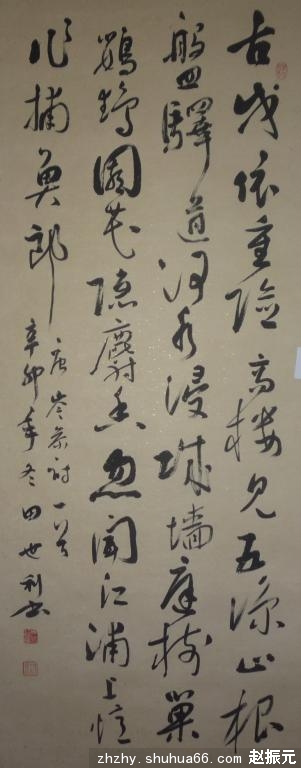 古戍依重險高楼见五凉山根
盤驛道河水浸城墙庭树巢
鸚鵡園花隐麝香忽闻江浦上憶
作捕魚郎
唐岑参诗一首
辛卯年冬田世利书
zhzhy.shuhua66.com 赵振元